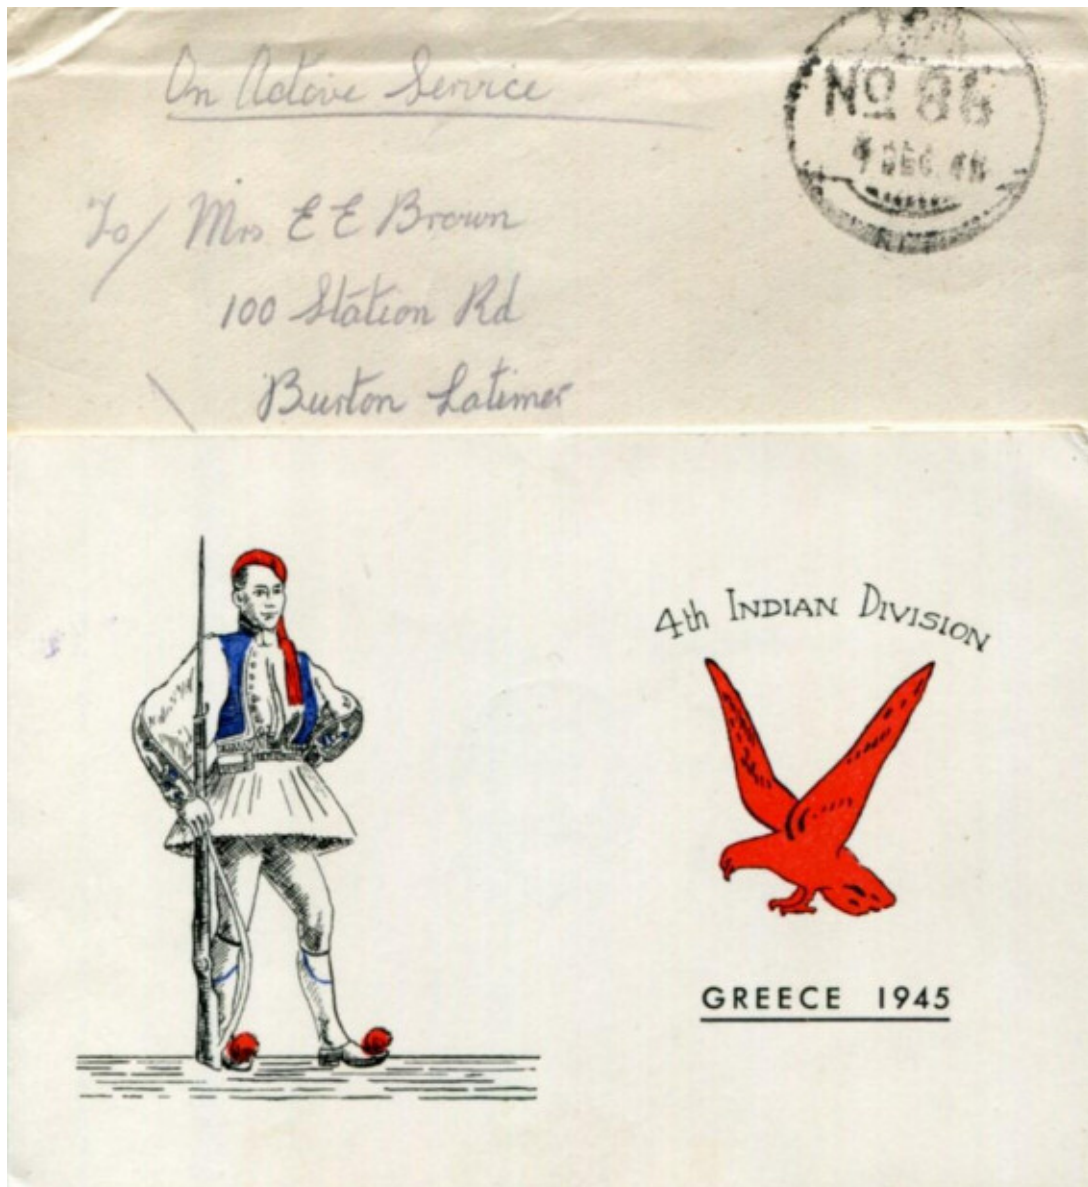 On Active Service
No 86
DEC 45
To/ Mrs E E Brown
100 Station Rd
Burton Latimer
4th INDIAN DIVISION
GREECE 1945